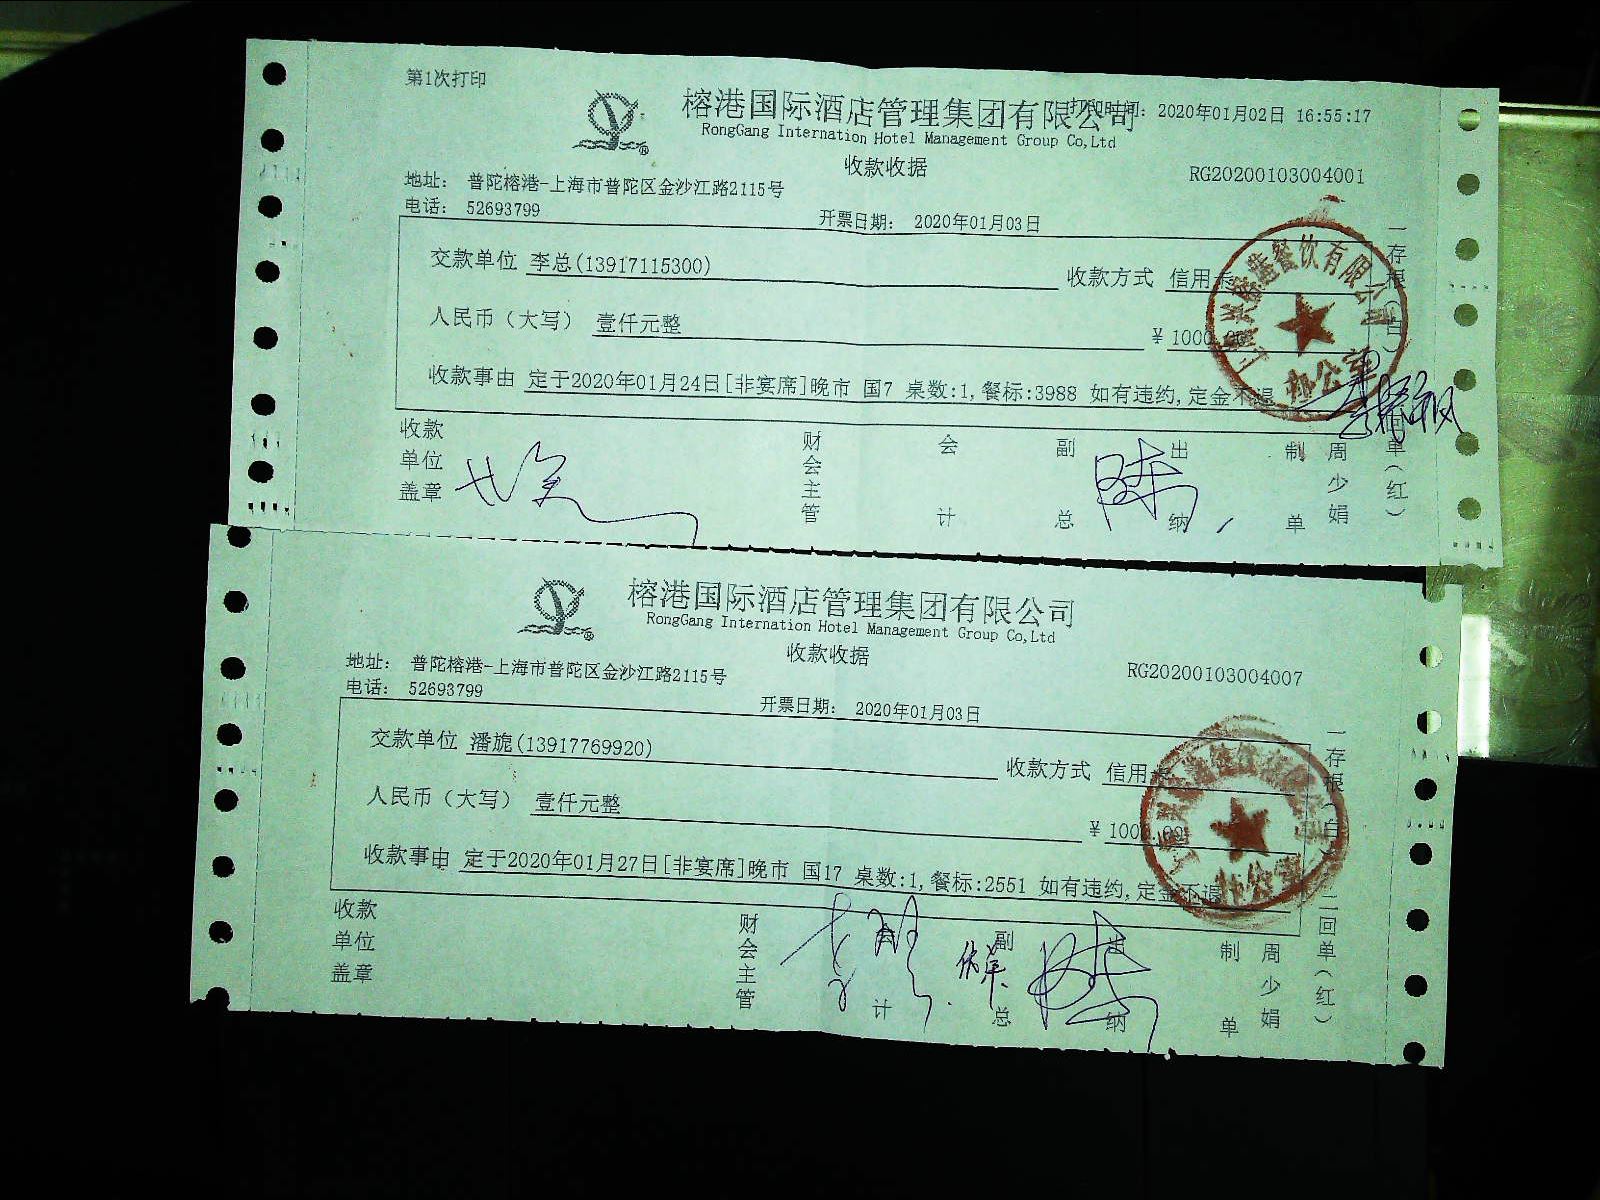 第1次打印
榕港国际酒店管理集团有限公司
打印时间: 2020年01月02日 16:55:17
RongGang Internation Hotel Management Group Co,Ltd
收款收据
RG20200103004001
地址: 普陀榕港-上海市普陀区金沙江路2115号
电话: 52693799
开票日期: 2020年01月03日
交款单位 李总(13917115300)
收款方式 信用卡
人民币（大写） 壹仟元整
¥ 1000.00
收款事由 定于2020年01月24日[非宴席]晚市 国7 桌数:1,餐标:3988 如有违约,定金不退
一存根(白)
二回单(红)
餐饮有限公司
办公室
收款单位盖章
财会主管
会计
副总
出纳
制单
周少娟
榕港国际酒店管理集团有限公司
RongGang Internation Hotel Management Group Co,Ltd
收款收据
RG20200103004007
地址: 普陀榕港-上海市普陀区金沙江路2115号
电话: 52693799
开票日期: 2020年01月03日
交款单位 潘旎(13917769920)
收款方式 信用卡
人民币（大写） 壹仟元整
¥ 1000.00
收款事由 定于2020年01月27日[非宴席]晚市 国17 桌数:1,餐标:2551 如有违约,定金不退
一存根(白)
二回单(红)
办公室
收款单位盖章
财会主管
会计
副总
出纳
制单
周少娟